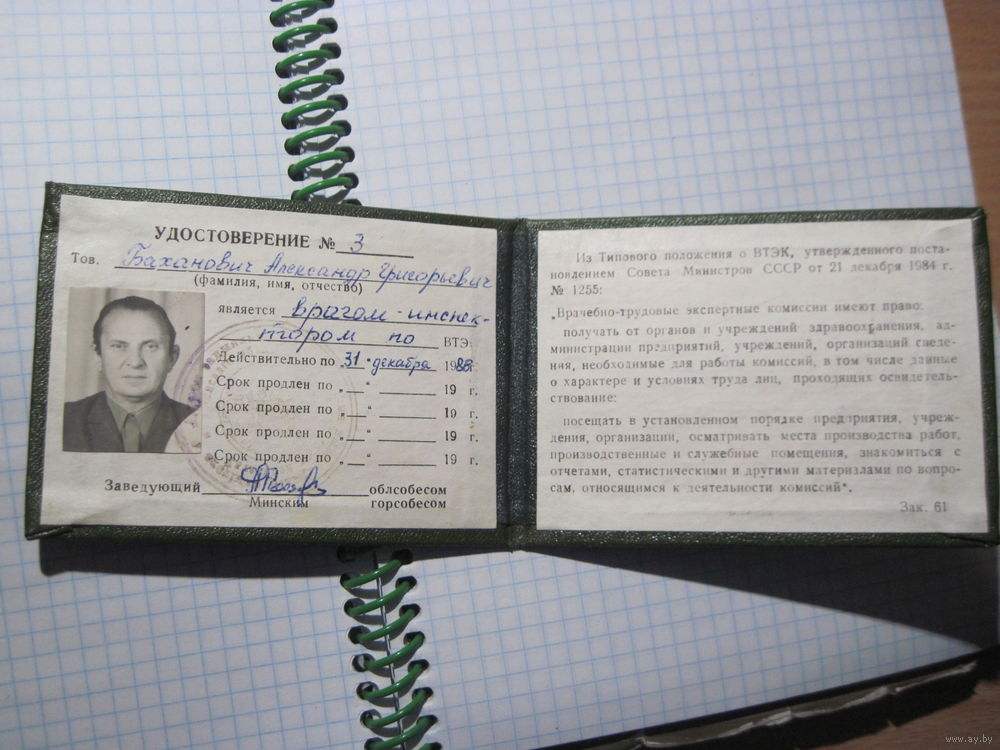 УДОСТОВЕРЕНИЕ № 3
Тов. Баханович Александр Григорьевич
(фамилия, имя, отчество)
является врагом-инспек-
тором по ВТЭ.
Действительно по „31“ декабря 1988 г.
Срок продлен по „__“ ______ 19 г.
Срок продлен по „__“ ______ 19 г.
Срок продлен по „__“ ______ 19 г.
Срок продлен по „__“ ______ 19 г.
Заведующий облсобесом
Минским горсобесом
Из Типового положения о ВТЭК, утвержденного поста-
новлением Совета Министров СССР от 21 декабря 1984 г.
№ 1255:
„Врачебно-трудовые экспертные комиссии имеют право:
получать от органов и учреждений здравоохранения, ад-
министрации предприятий, учреждений, организаций сведе-
ния, необходимые для работы комиссий, в том числе данные
о характере и условиях труда лиц, проходящих освидетель-
ствование:
посещать в установленном порядке предприятия, учреж-
дения, организации, осматривать места производства работ,
производственные и служебные помещения, знакомиться с
отчетами, статистическими и другими материалами по вопро-
сам, относящимся к деятельности комиссий“.
Зак. 61
www.ay.by